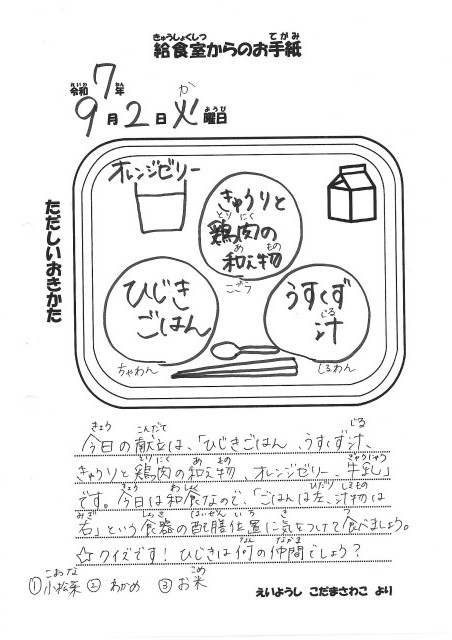 きゅうしょくしつ てがみ
給食室からのお手紙
れいわ ねん
令和7年
か ようび
9月2日火曜日
ただしいおきかた
オレンジゼリー
きゅうりと
とり にく
鶏肉の
あ もの
和え物
こざら
ひじき
ごはん
ちゃわん
うすくず
じる
汁
しるわん
きょう こんだて じる
今日の献立は、「ひじきごはん、うすくず汁、
とりにく あ もの ぎゅうにゅう
きゅうりと鶏肉の和え物、オレンジゼリー、牛乳」
きょう わしょく ひだり しるもの
です。今日は和食なので、「ごはんは左、汁物は
みぎ しょっき はいぜん いち き た
右」という食器の配膳位置に気をつけて食べましょう。
なん なかま
☆クイズです!ひじきは何の仲間でしょう?
こまつな こめ
①小松菜 ②わかめ ③お米
えいようし こだまさわこ より